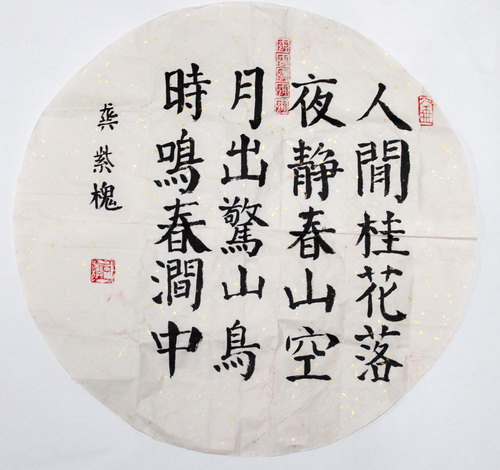 人閒桂花落
夜靜春山空
月出驚山鳥
時鳴春澗中
龚紫槐